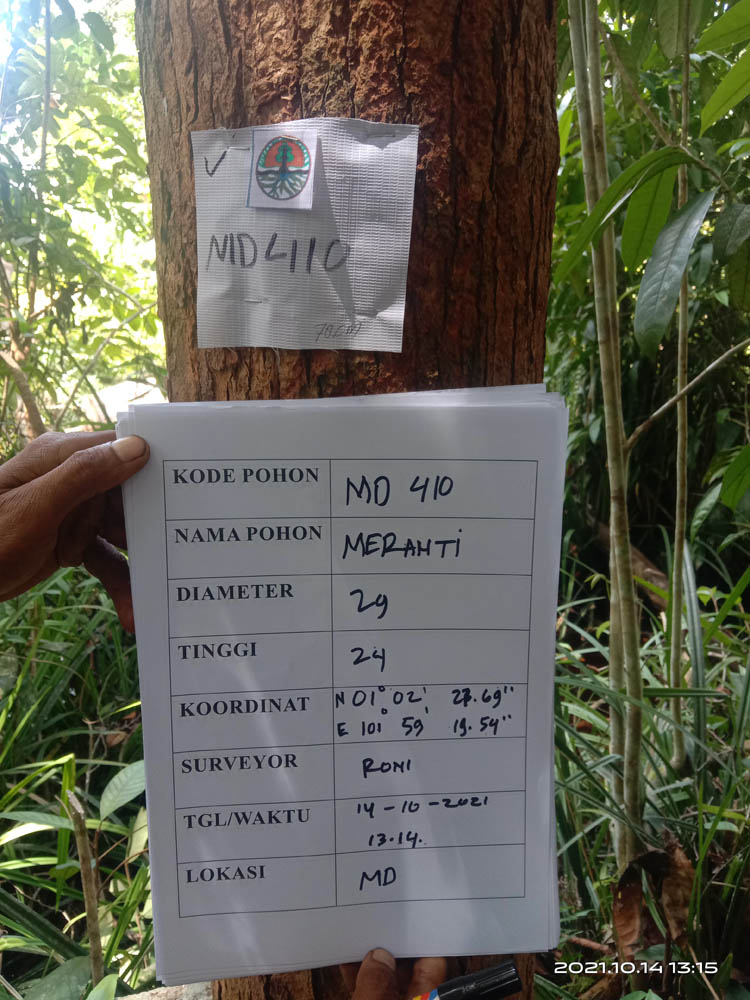 MD 410
KODE POHON MD 410
NAMA POHON MERANTI
DIAMETER 29
TINGGI 24
KOORDINAT N 01° 02' 27.69"
E 101° 59' 19.54"
SURVEYOR RONI
TGL/WAKTU 14-10-2021
13.14.
LOKASI MD
2021.10.14 13:15